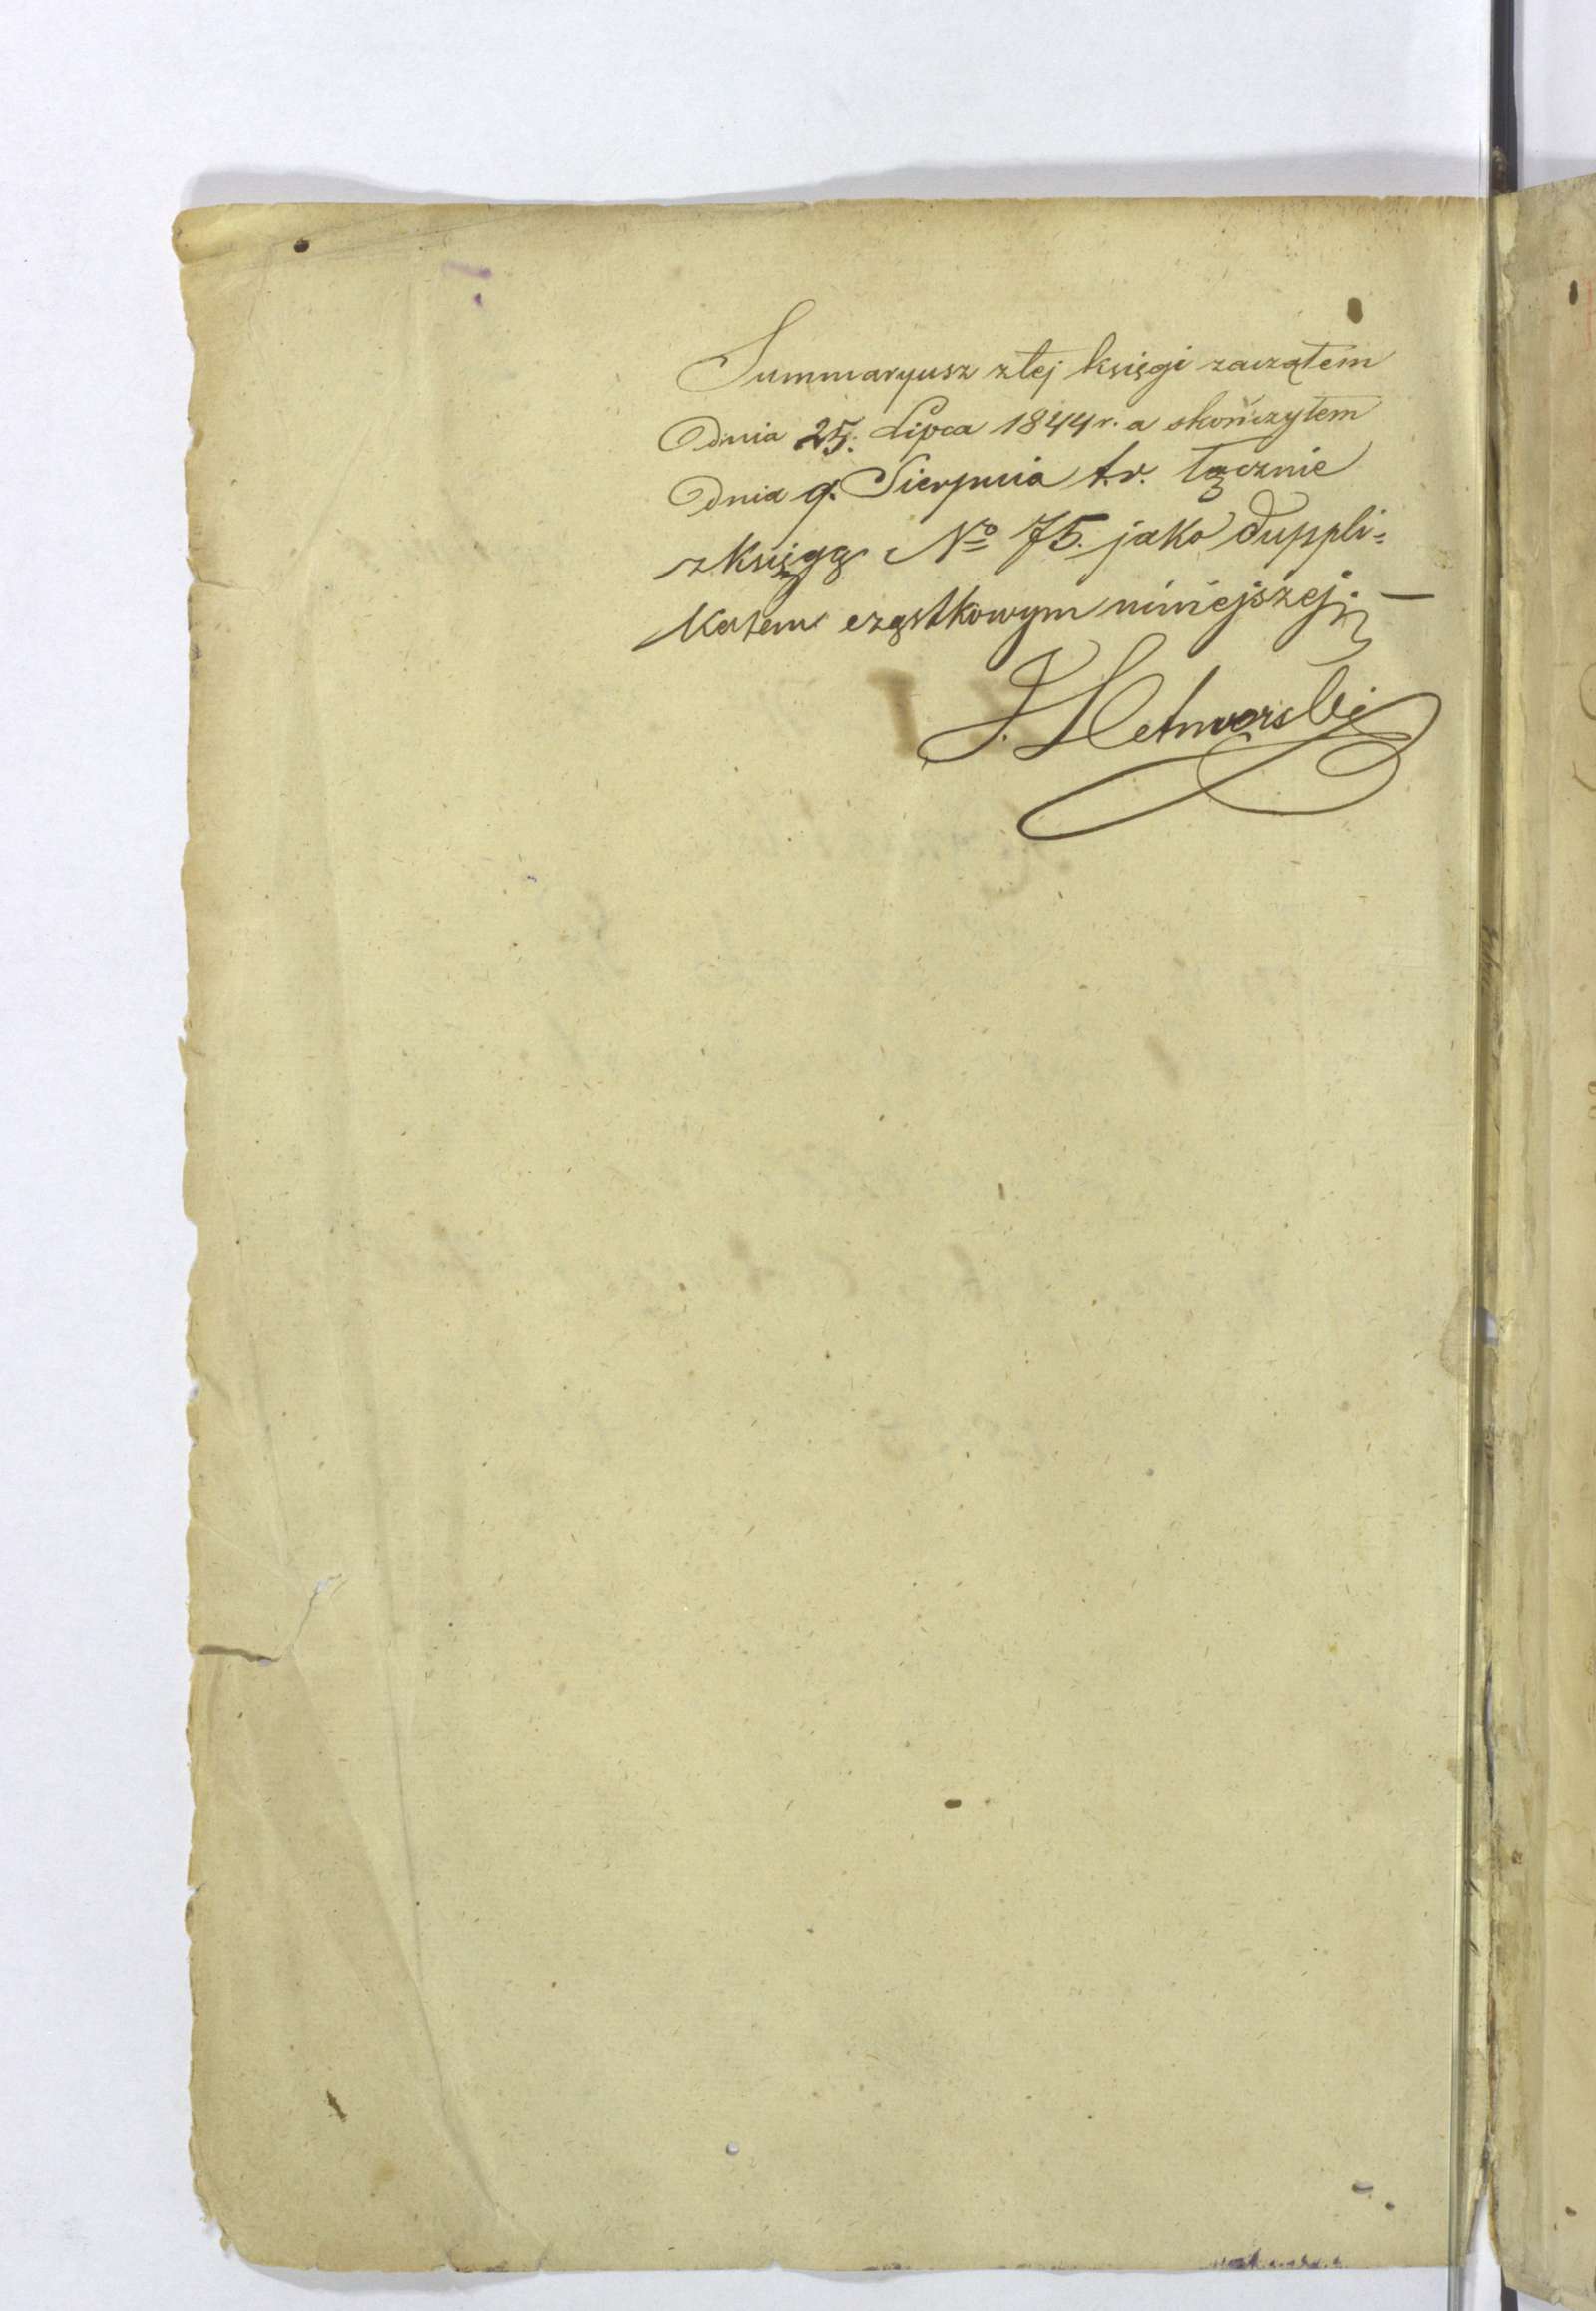 Summaryusz z tej księgi zacząłem
Dnia 25. Lipca 1844 r. a skończyłem
Dnia 9. Sierpnia t. r. łącznie
z księgą No 75. jako duppli=
katem cząstkowym niniejszej. —
J.